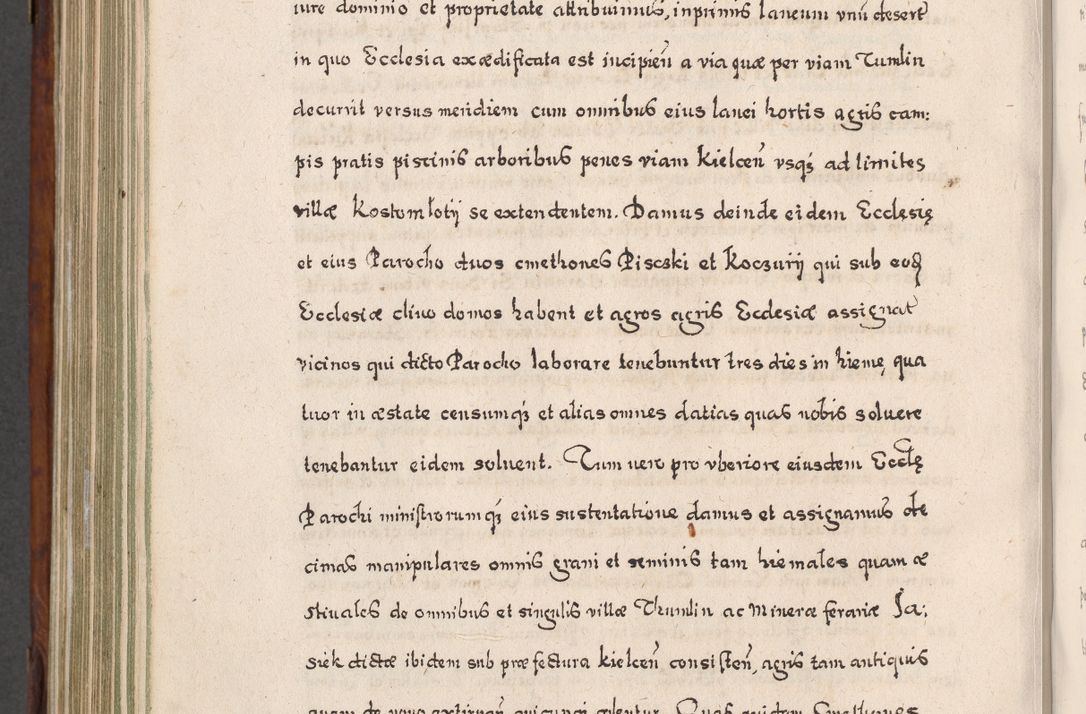 iure dominio et proprietate attribuimus, inprimis laneum vnū desert
in quo Ecclesia exædificata est incipień a via quæ per viam Tumlin
decurrit versus meridiem cum omnibus eius lanei hortis agris cam:
pis pratis piscinis arboribus penes viam Kielceń vsqȝ ad limites
villæ Kostomłotij se extendentem. Damus deinde eidem Ecclesię
et eius Parocho duos cmethones Pisczki et Koczurij qui sub eoꝝ
Ecclesiæ cliuo domos habent et agros agris Ecclesiæ assignat
vicinos qui dicto Parocho laborare tenebuntur tres dies in hieme, qua
tuor in æstate censumqȝ et alias omnes datias quas nobis soluere
tenebantur eidem soluent. Tum vero pro vberiore eiusdem Ecclę
Parochi ministrorumqȝ eius sustentatione damus et assignamus de
cimas manipulares omnis grani et seminis tam hiemales quam æ
stiuales de omnibus et singulis villæ Thumlin ac Mineræ ferariæ Ja:
siek dictæ ibidem sub præfectura Kielceń consisteń, agris tam antiquis
quam de nouo extirpań quicunqȝ Quas quidem Cmethones